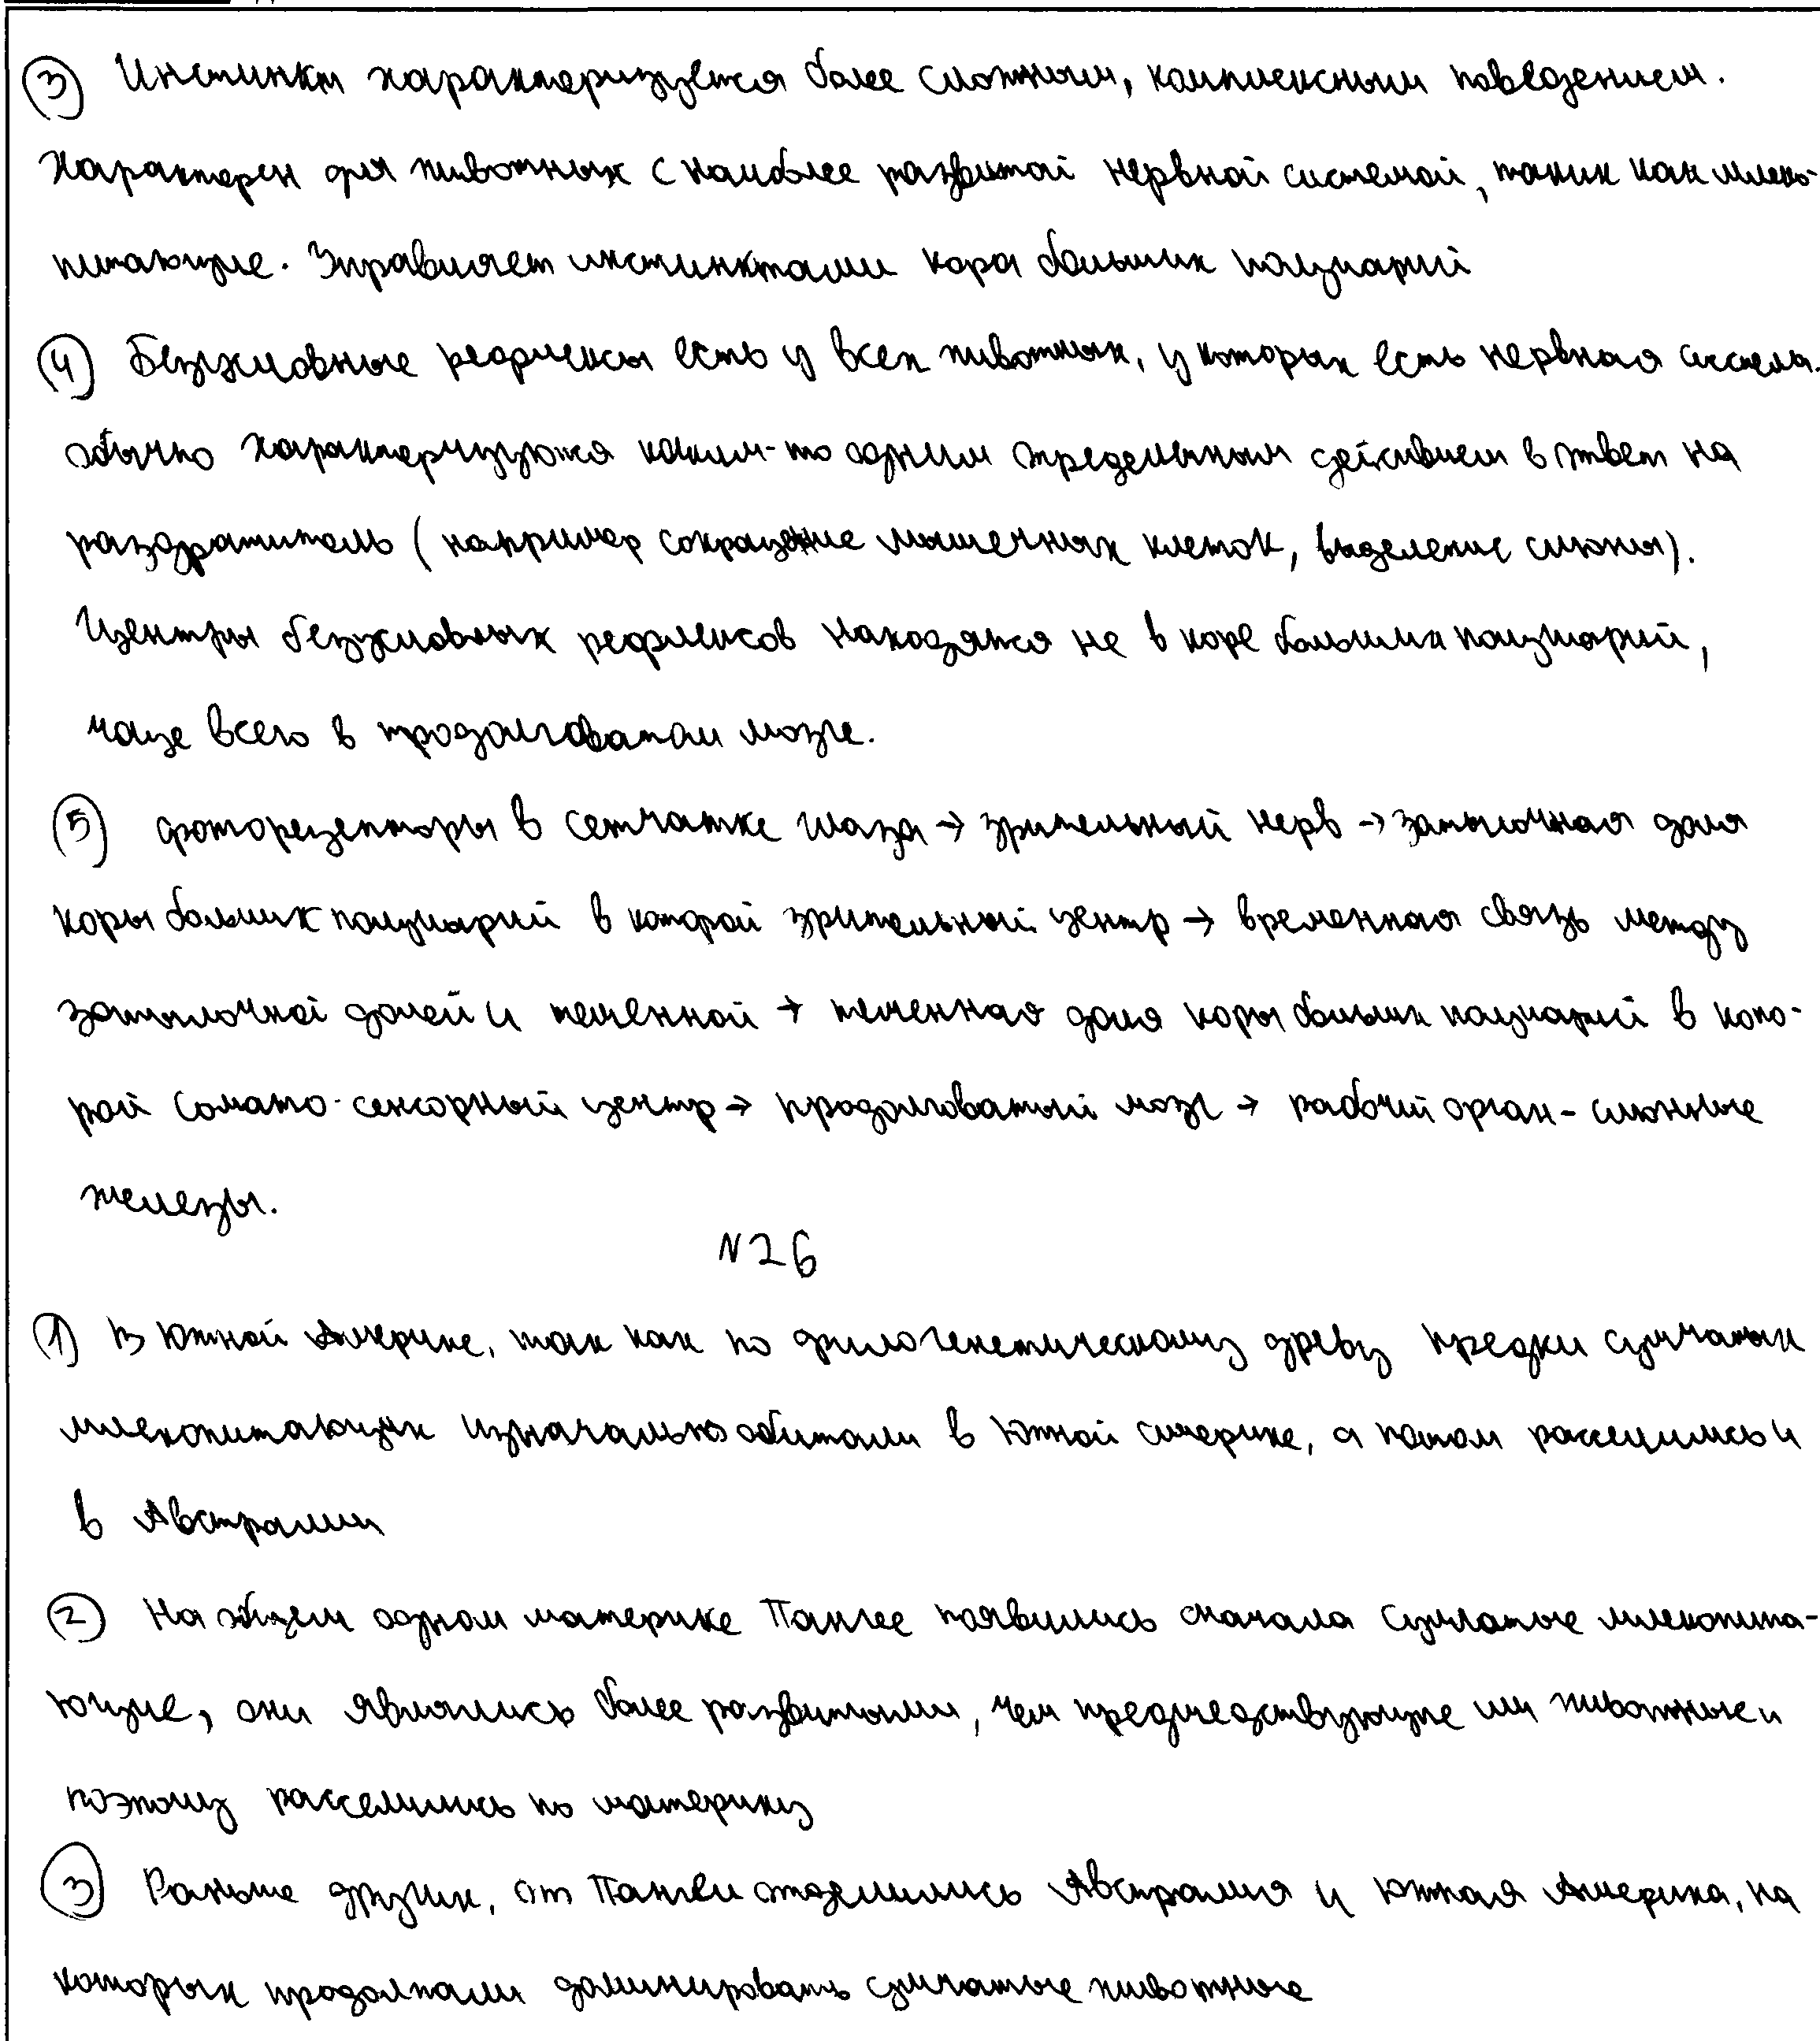 ③ Инстинкт характеризуется более сложным, комплексным поведением.
Характерен для животных с наиболее развитой нервной системой, таких как млеко-
питающие. Управляет инстинктами кора больших полушарий
④ Безусловные рефлексы есть у всех животных, у которых есть нервная система.
Обычно характеризуются каким-то одним определенным действием в ответ на
раздражитель (например сокращение мышечных клеток, выделение слюны).
Центры безусловных рефлексов находятся не в коре больших полушарий,
чаще всего в продолговатом мозге.
⑤ фоторецепторы в сетчатке глаза → зрительный нерв → затылочная доля
коры больших полушарий в которой зрительный центр → временная связь между
затылочной долей и теменной → теменная доля коры больших полушарий в кото-
рой сомато-сенсорный центр → продолговатый мозг → рабочий орган - слюнные
железы.
N26
① В Южной Америке, так как по филогенетическому древу предки сумчатых
млекопитающих изначально обитали в Южной Америке, а потом расселились и
в Австралии
② На общем одном материке Пангее появились сначала сумчатые млекопита-
ющие, они являлись более развитыми, чем предшествующие им животные и
поэтому расселились по материку
③ Раньше других, от Пангеи отделились Австралия и Южная Америка, на
которых продолжали доминировать сумчатые животные